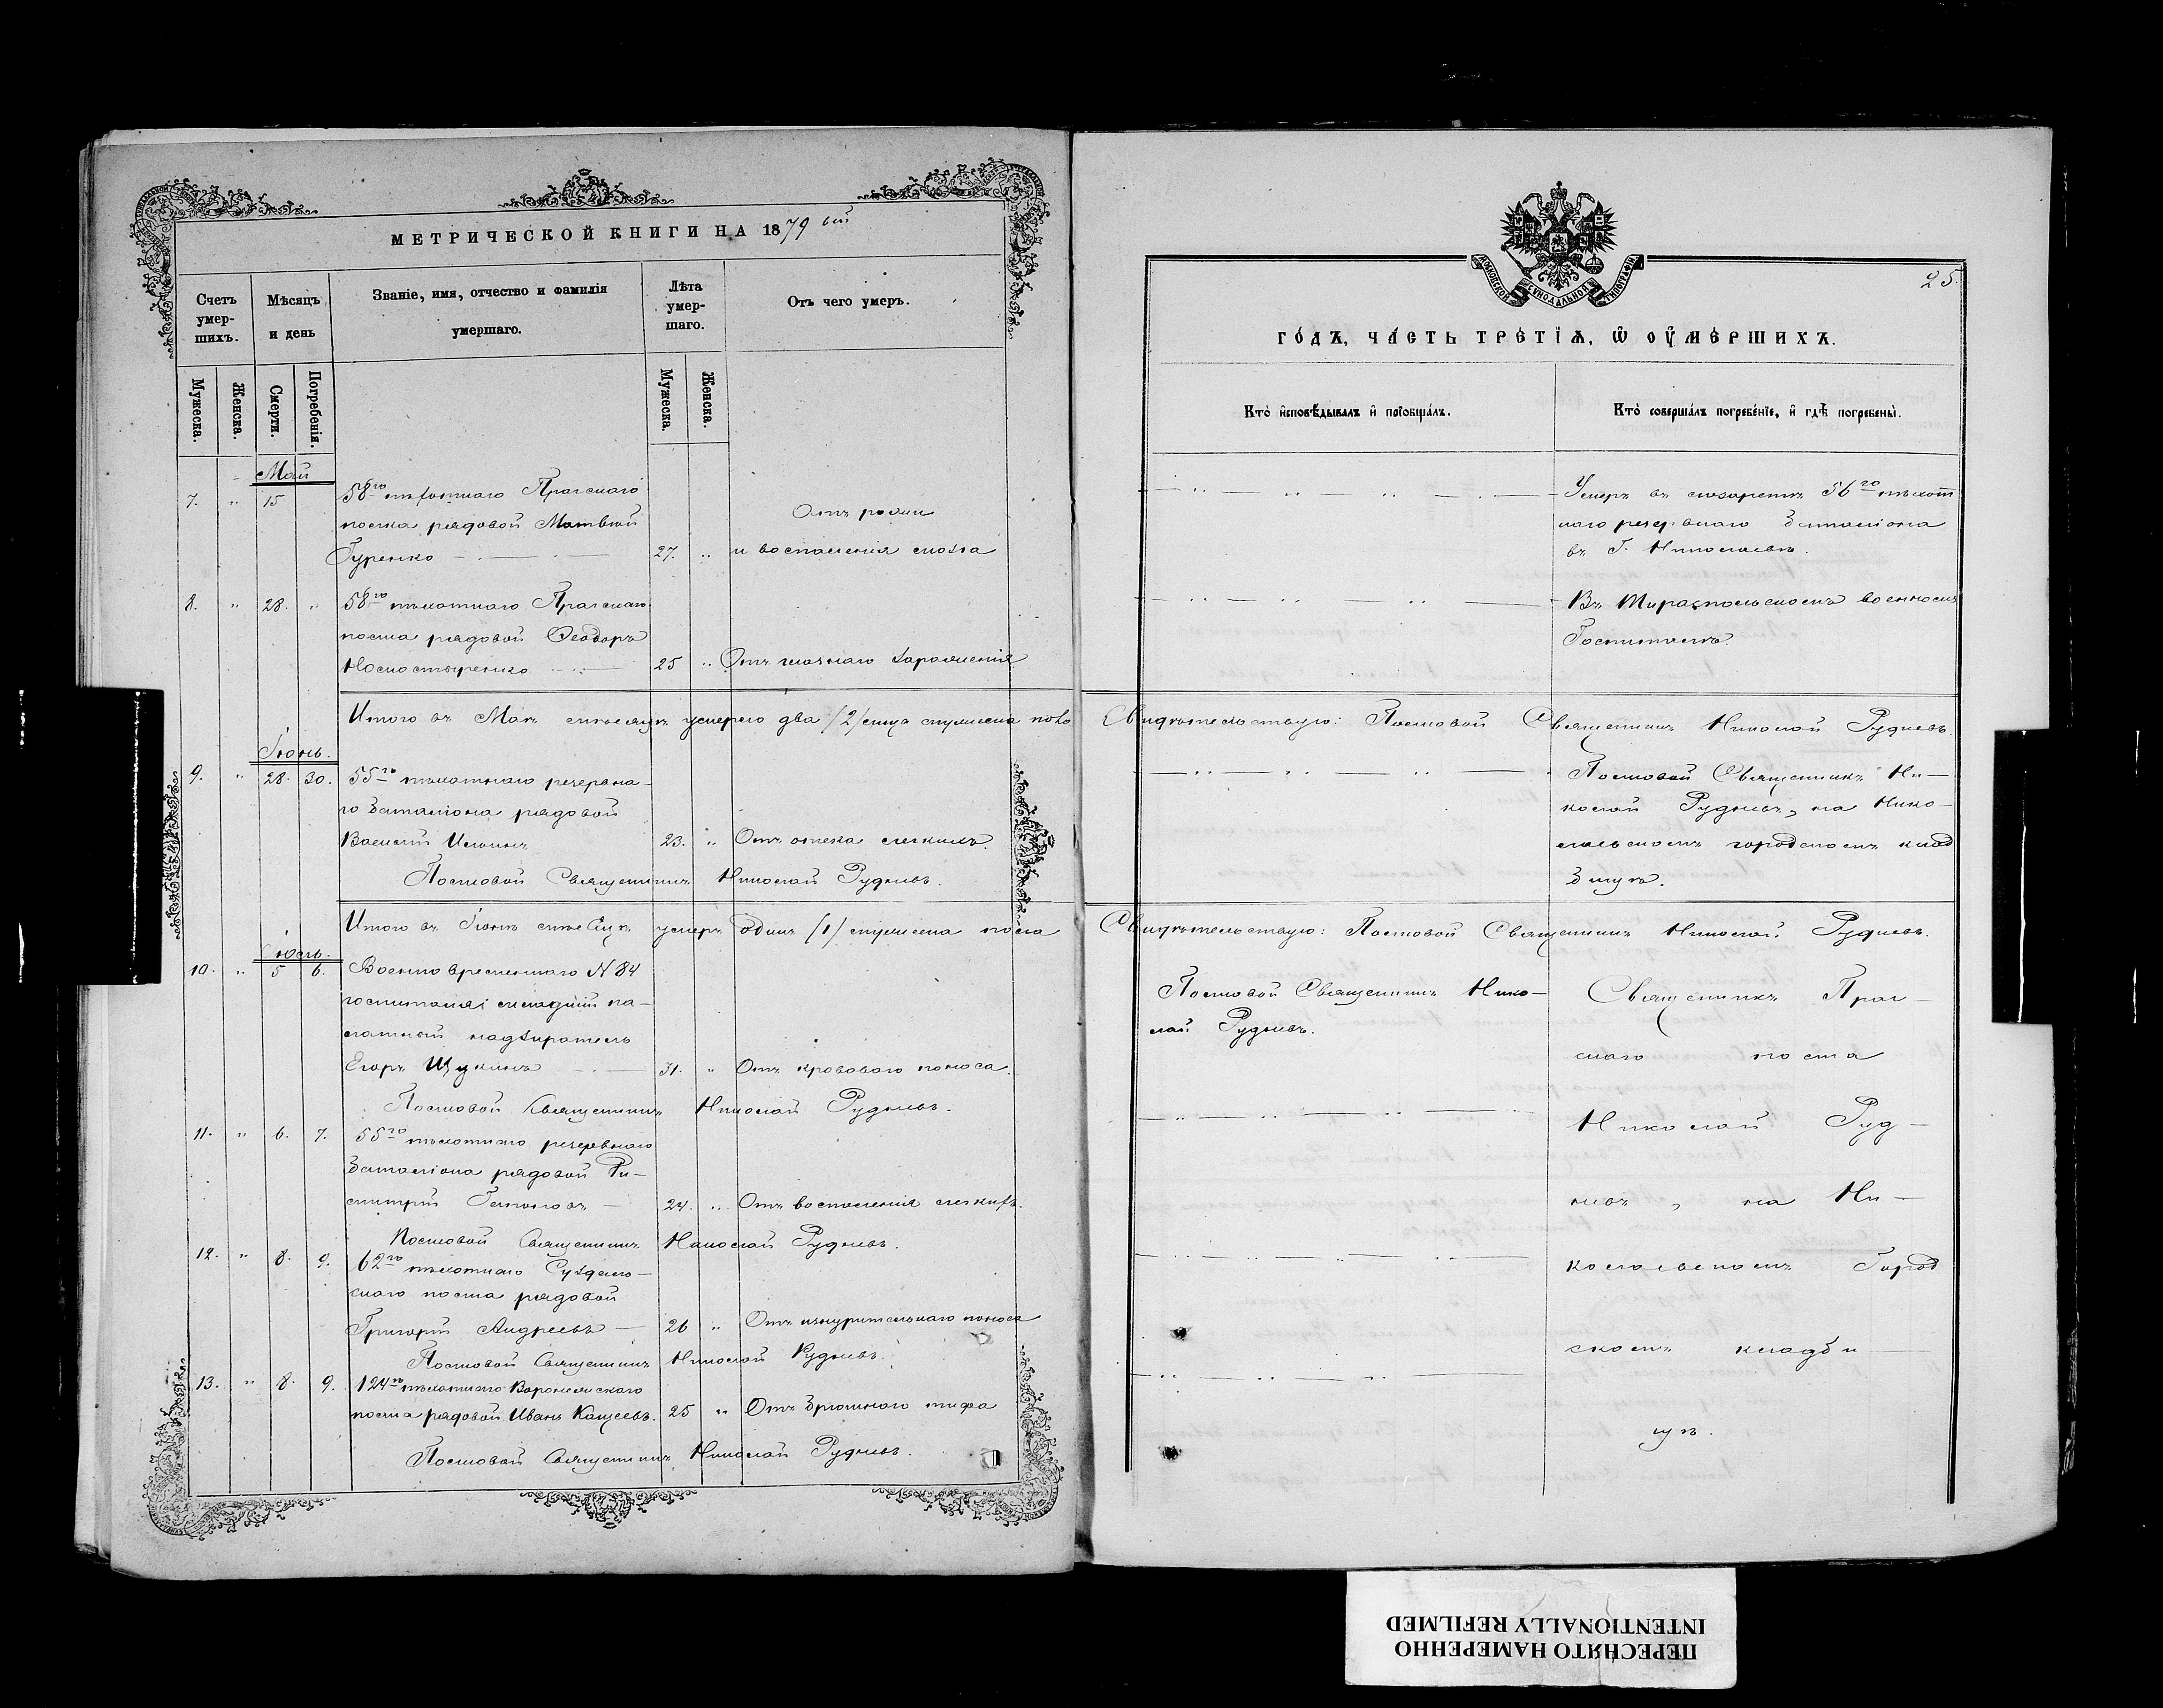 МЕТРИЧЕСКОЙ КНИГИ НА 1879 ый
Счетъ умер-шихъ.
Мѣсяцъ и день
Званіе, имя, отчество и фамилія умершаго.
Лѣта умер-шаго.
Отъ чего умеръ.
Мужеска.
Женска.
Смерти.
Погребенія.
Мужеска.
Женска.
Май
7. " 15
58го пѣхотнаго Прагскаго
полка рядовой Матвѣй
Гуренко 27. "
Отъ рожи
и воспаленія мозга
8. " 28. "
58го пѣхотнаго Прагскаго
полка рядовой Ѳеодоръ
25 "
Итого въ Маѣ мѣсяцѣ умерло два /2/ лица мужеска пола
Іюнь.
9. " 28. 30.
55го пѣхотнаго резервна-
го баталіона рядовой
Василій Ильинъ 23. " Отъ отека легкихъ.
Полковой Священникъ Николай Рудневъ.
Итого въ Іюнѣ мѣсяцѣ умеръ одинъ /1/ мужеска пола
Іюль.
10. " 5 6.
Военно временнаго N 84
госпиталя младшій па-
латный надзиратель
Егоръ Щукинъ 31. " Отъ кроваваго поноса.
Полковой Священникъ Николай Рудневъ.
11. " 6. 7.
55го пѣхотнаго резервнаго
баталіона рядовой Ди-
митрій 24. " Отъ воспаленія легкихъ.
Полковой Священникъ Николай Рудневъ.
12. " 8. 9.
62го пѣхотнаго Суздаль-
скаго полка рядовой
Григорій Андреевъ 26 " Отъ изнурительнаго поноса
Полковой Священникъ Николай Рудневъ.
13. " 8. 9.
124го пѣхотнаго Воронежскаго
полка рядовой Иванъ Кащеевъ. 25 " Отъ брюшного тифа
Полковой Священникъ Николай Рудневъ.
МОСКОВСКОЙ СѴНОДАЛЬНОЙ ТИПОГРАФІИ
25.
ГО́ДЪ, ЧА́СТЬ ТРЕ́ТІѦ, Ѡ҆ ОУ҆МЕ́РШИХЪ.
Кто̀ и҆сповѣ́дывалъ и҆ прїобща́лъ.
Кто̀ соверша́лъ погребе́нїе, и҆ гдѣ̀ погребены̀.
Умеръ въ лазаретѣ 56го пѣхот
наго резервнаго баталіона
въ Г. Николаевѣ.
Въ Тираспольскомъ военномъ
Госпиталѣ.
Свидѣтельствую: Полковой Священникъ Николай Рудневъ.
Полковой Священникъ Ни-
колай Рудневъ, на Нико-
лаевскомъ городскомъ клад
бищѣ.
Свидѣтельствую: Полковой Священникъ Николай Рудневъ.
Полковой Священникъ Нико-
лай Рудневъ.
Священникъ Праг-
скаго полка
Николай Руд-
невъ, на Ни-
колаевскомъ Город
скомъ кладби
щѣ.
ПЕРЕСНЯТО НАМЕРЕННО
INTENTIONALLY REFILMED